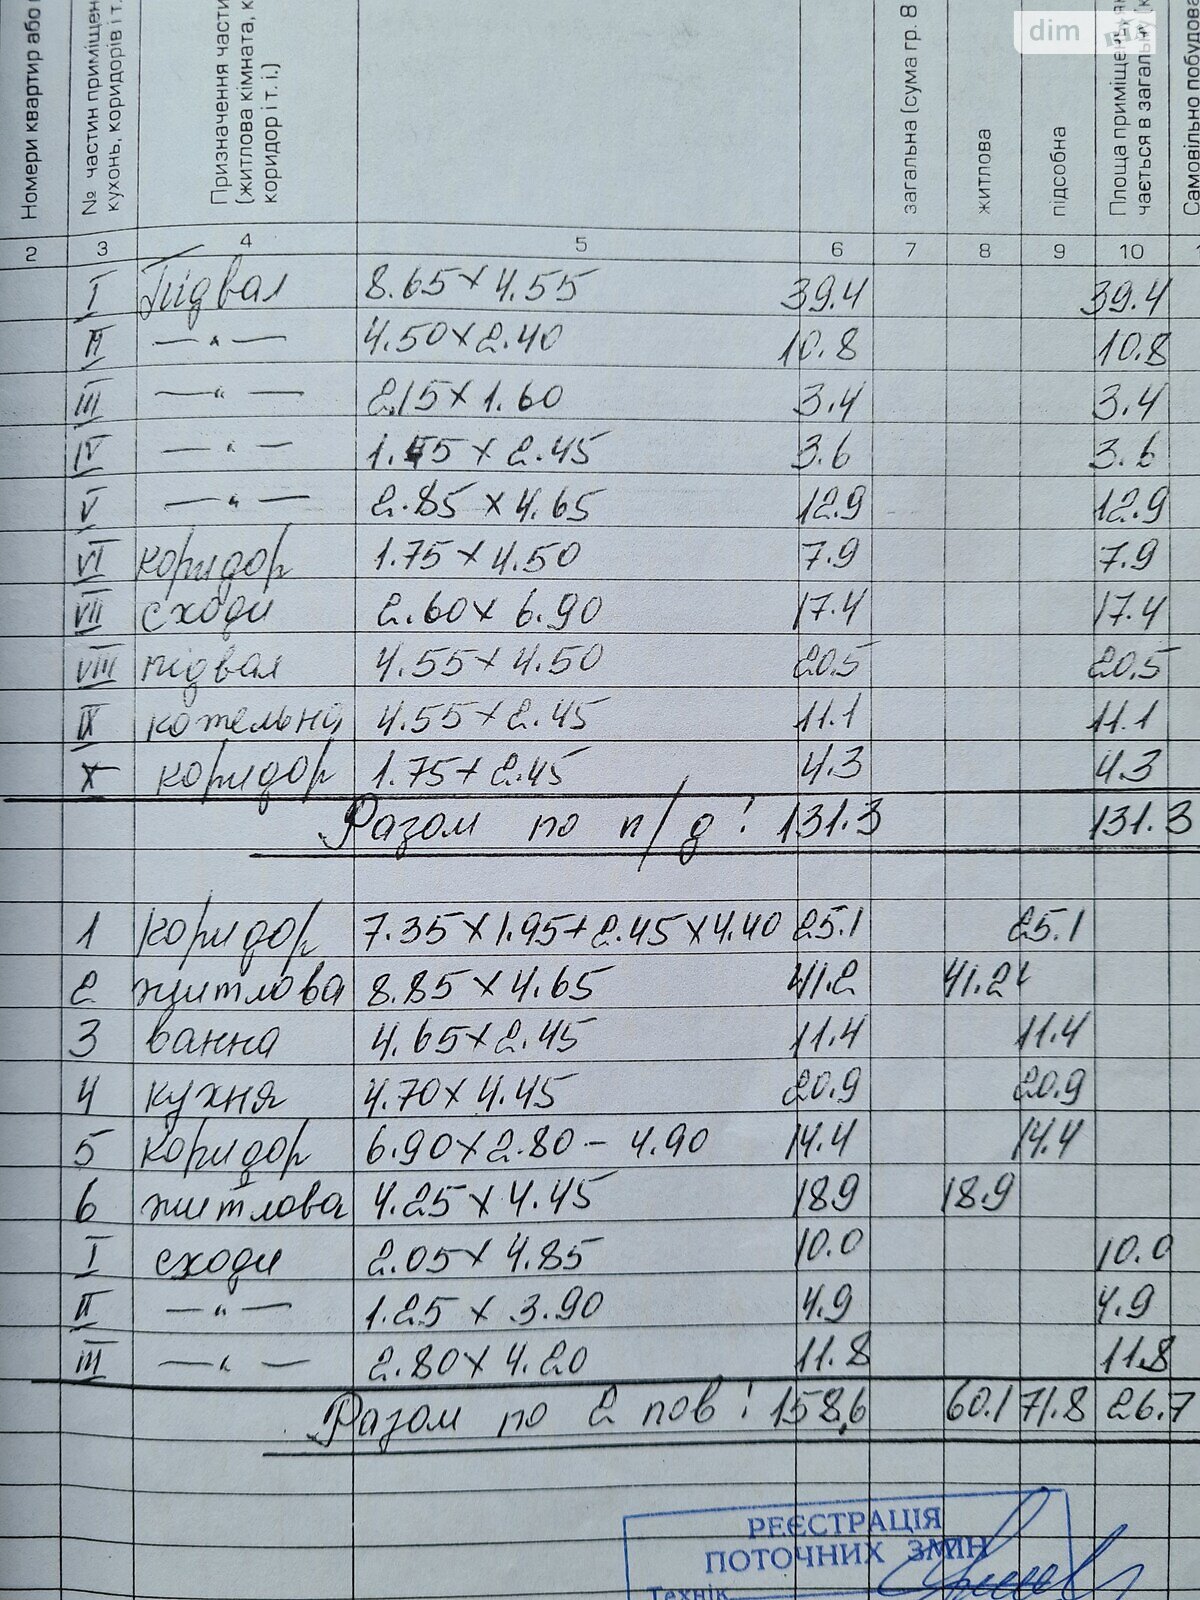 dim
Номери квартир або
№ частин приміщен
кухонь, коридорів і т.
Призначення части
(житлова кімната, к
коридор і т. і.)
загальна (сума гр. 8
житлова
підсобна
Площа приміщень
чається в загальну (к
Самовільно побудова
2 3 4 5 6 7 8 9 10
I Підвал 8.65 x 4.55 39.4 39.4
II —"— 4.50 x 2.40 10.8 10.8
III —"— 2.15 x 1.60 3.4 3.4
IV —"— 1.45 x 2.45 3.6 3.6
V —"— 2.85 x 4.65 12.9 12.9
VI коридор 1.75 x 4.50 7.9 7.9
VII сходи 2.60 x 6.90 17.4 17.4
VIII підвал 4.55 x 4.50 20.5 20.5
IX котельня 4.55 x 2.45 11.1 11.1
X коридор 1.75 x 2.45 4.3 4.3
Разом по п/д: 131.3 131.3
1 коридор 7.35 x 1.95 + 2.45 x 4.40 25.1 25.1
2 житлова 8.85 x 4.65 41.2 41.2
3 ванна 4.65 x 2.45 11.4 11.4
4 кухня 4.70 x 4.45 20.9 20.9
5 коридор 6.90 x 2.80 - 4.90 14.4 14.4
6 житлова 4.25 x 4.45 18.9 18.9
I сходи 2.05 x 4.85 10.0 10.0
II —"— 1.25 x 3.90 4.9 4.9
III —"— 2.80 x 4.20 11.8 11.8
Разом по 2 пов: 158.6 60.1 71.8 26.7
РЕЄСТРАЦІЯ
ПОТОЧНИХ ЗМІН
Технік